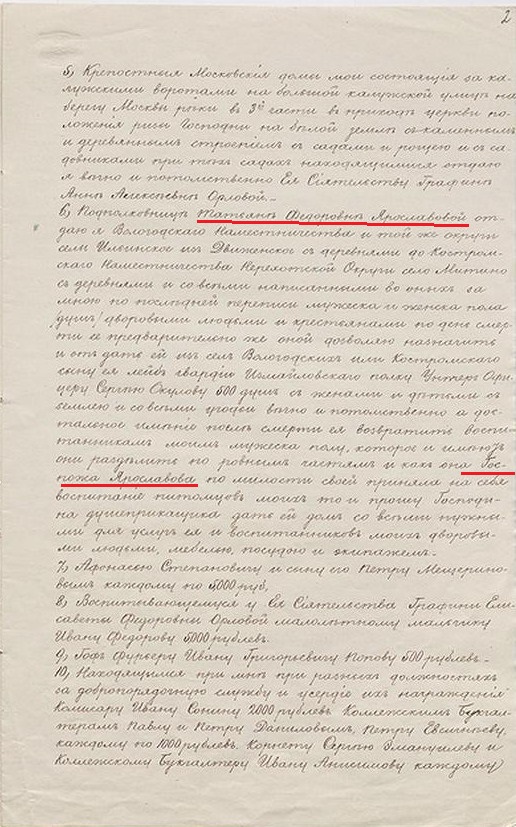 2
5) Крепостныя Московскія домы мои состоящія за ка-
лужскими воротами на большой калужской улице на
берегу Москвы реки въ 3й части въ приходе церкви по-
ложенія ризы Господни на белой земле съ каменнымъ
и деревяннымъ строеніемъ съ садами и рощею и съ са-
довниками при техъ садахъ находящимися отдаю
я вечно и потомственно Ея Сіятельству Графине
Анне Алексеевне Орловой.-
6) Подполковнице Татьяне Федоровне Ярославовой от-
даю я Вологодскаго Наместничества и той же округи
село Ильинское изъ Движенское съ деревнями до Костром-
скаго Наместничества Нерехотской Округи село Митино
съ деревнями и со всеми написанными во оныхъ за
мною по последней переписи мужеска и женска пола
/душъ/ дворовыми людьми и крестьянами по день смер-
ти ее предварительно же оной дозволяю назначить
и отдать ей изъ селъ Вологодскихъ или Костромскаго
сыну ея лейбъ гвардіи Измайловскаго полку Унтеръ Офи-
церу Сергею Окулову 500 душъ съ женами и детьми съ
землею и со всеми угодьи вечно и потомственно а дос-
тальное именіе после смерти ея возвратить воспи-
танникамъ моимъ мужеска полу, которое и имеютъ
они разделить по ровнымъ частямъ и какъ она Гос-
пожа Ярославова по милости своей приняла на себя
воспитаніе питомцовъ моихъ то и прошу Господи-
на душеприкащика дать ей домъ со всеми нужны-
ми для услугъ ея и воспитанниковъ моихъ дворовы-
ми людьми, мебелью, посудою и экипажемъ.-
7) Афонасью Степановичу и сыну его Петру Мещерино-
вымъ каждому по 5,000 руб,
8) Воспитывающемуся у Ея Сіятельства Графини Ели-
саветы Федоровны Орловой малолетному мальчику
Ивану Федорову 5000 рублевъ.
9) Гофъ Фурьеру Ивану Григорьевичу Попову 500 рублевъ.-
10) Находящимся при мне при разныхъ должностяхъ
за добропорядочную службу и усердіе ихъ награжденія
Комисару Ивану Сонину 2000 рублевъ Коллежскимъ Бухгал-
терамъ Павлу и Петру Даниловымъ, Петру Евсигнееву,
каждому по 1000 рублевъ. Корнету Сергею Эмануилеву и
Коллежскому Бухгалтеру Ивану Анисимову каждому